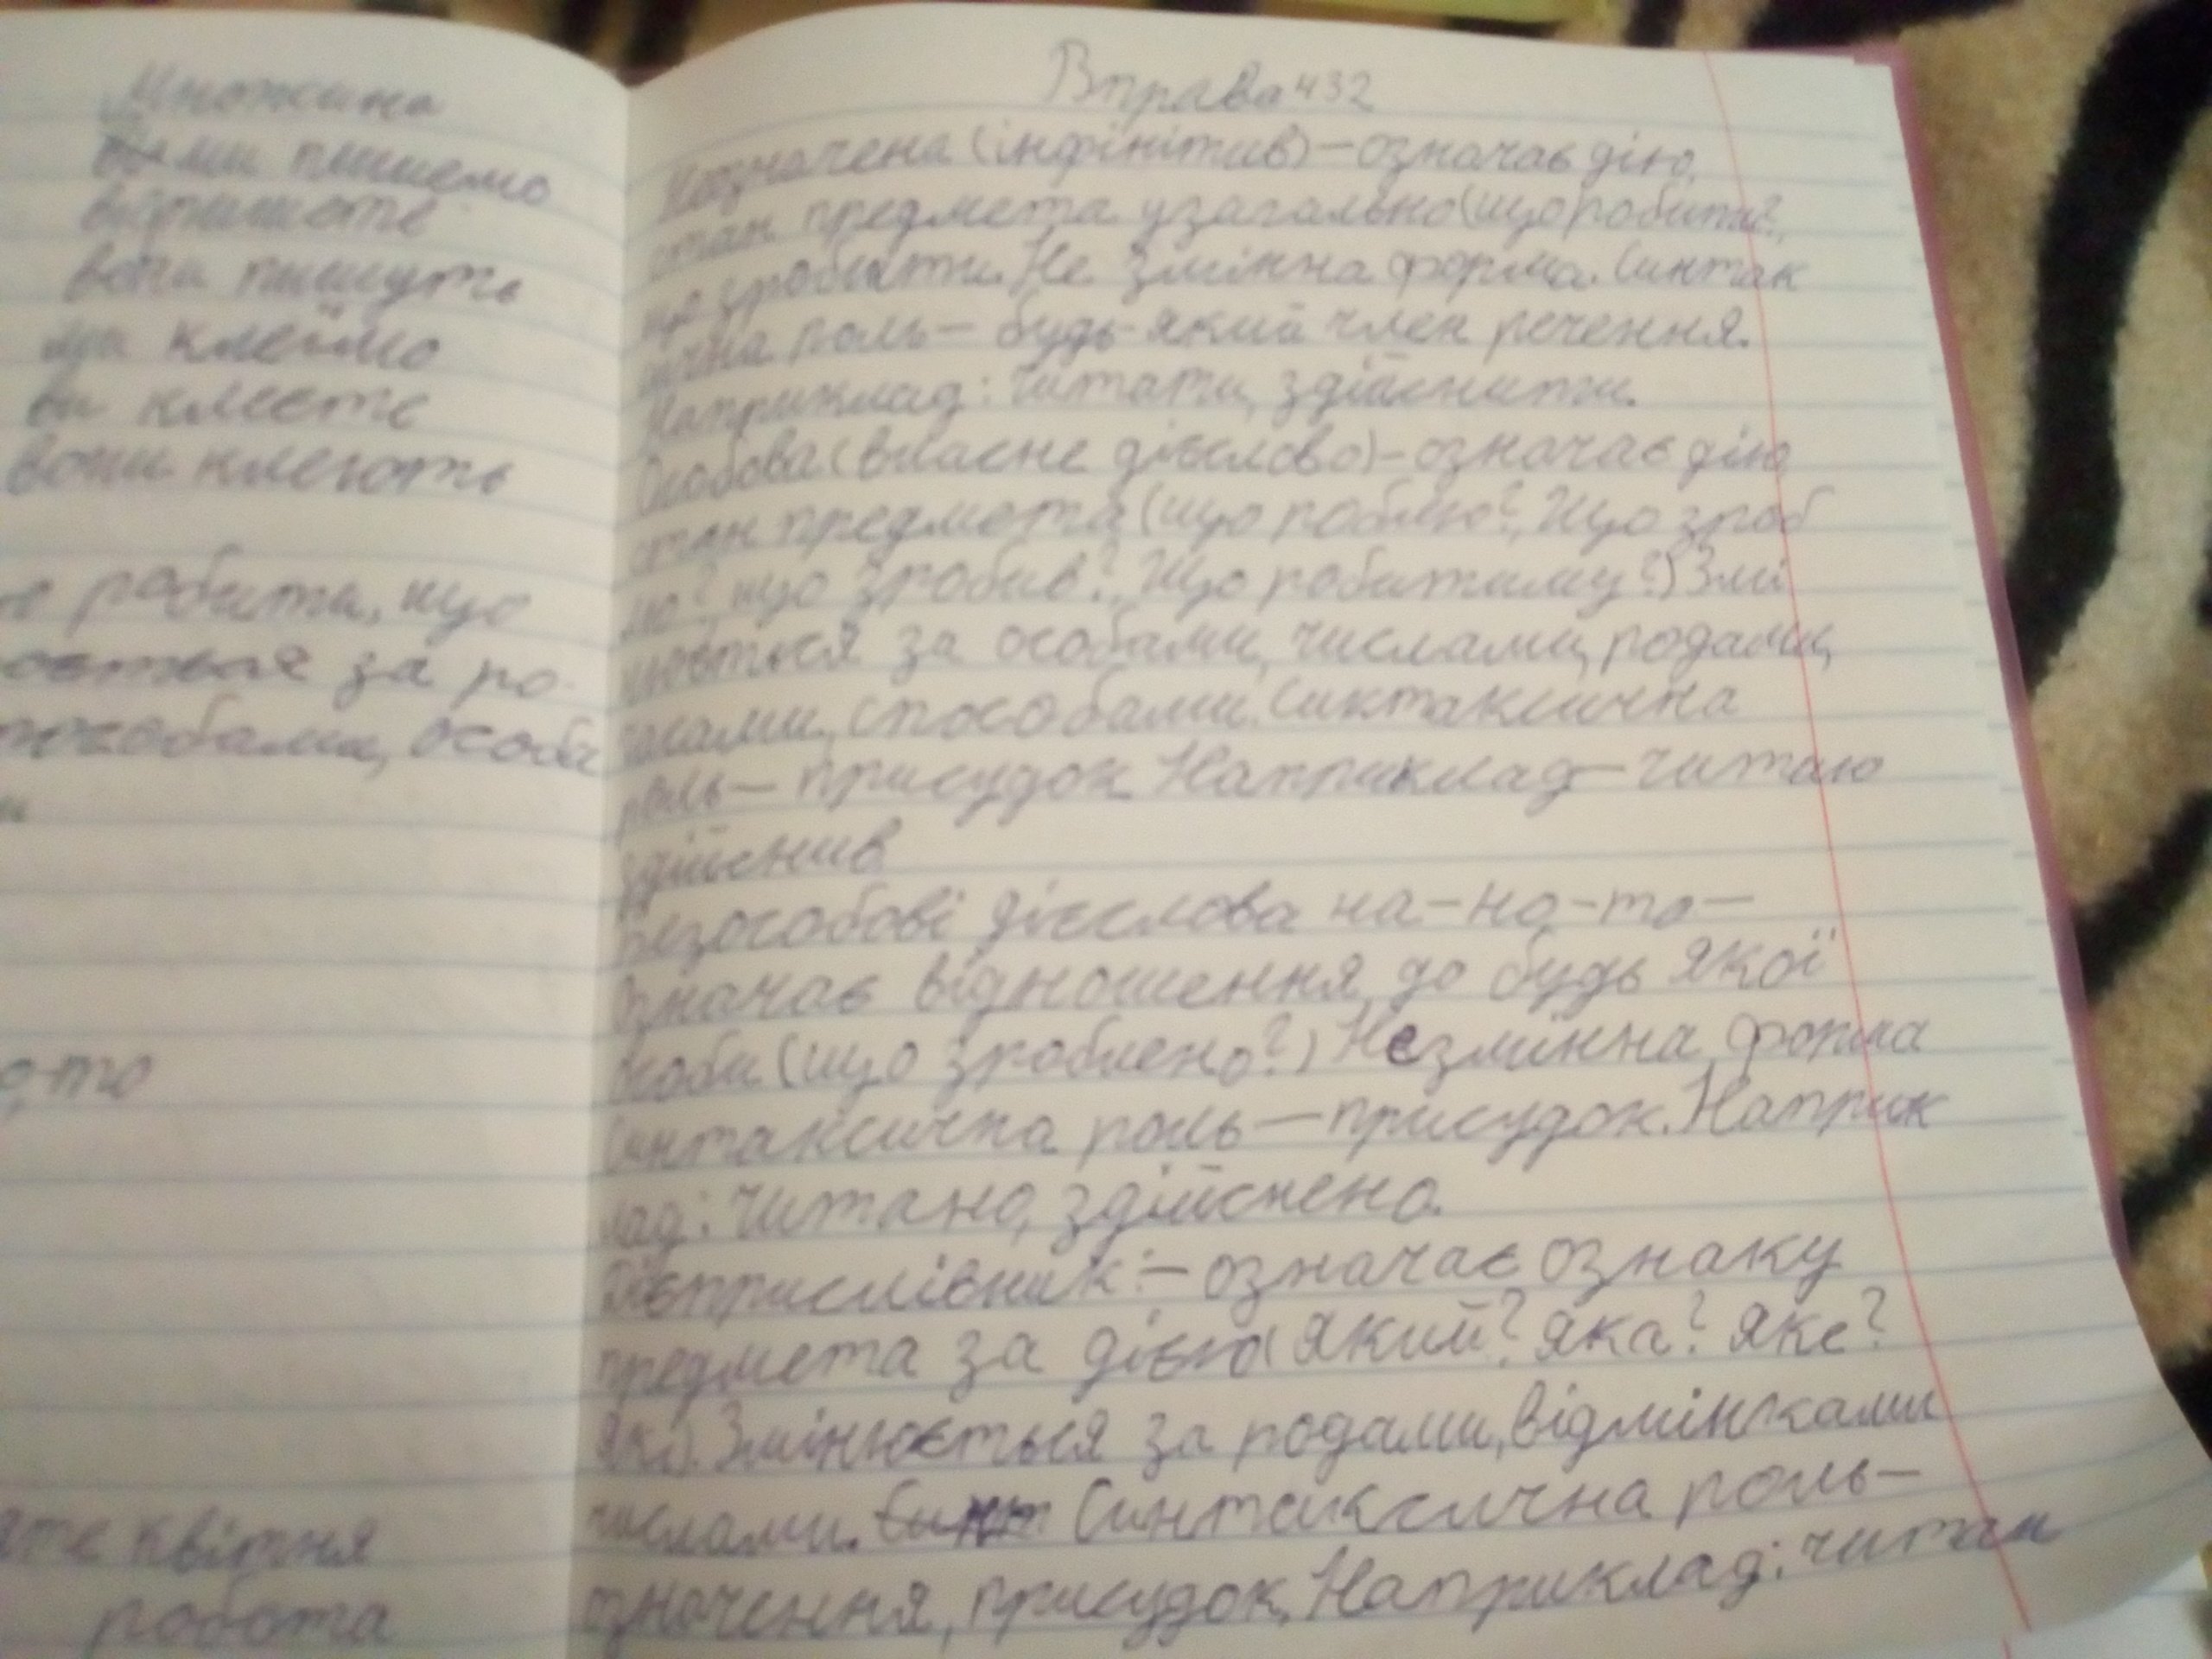 Множина
ми пишемо
ви пишете
вони пишуть
ми клеїмо
ви клеєте
вони клеють
робити, що
за ро-
особа
о,-то
квітня
робота
Вправа 432
Неозначена (інфінітив) – означає дію,
стан предмета узагально (що робити?,
що зробити. Не змінна форма. Синтак
сична роль – будь-який член речення.
Наприклад: читати, здійснити.
Особова (власне дієслово) – означає дію
стан предмета (що роблю?, Що зроб
лю?, що зробив?, Що робитиму?) Змі
нюється за особами, числами, родами,
часами, способами. Синтаксична
роль – присудок Наприклад – читаю
здійснив
Безособові дієслова на -но, -то –
Означає відношення до будь якої
особи (що зроблено?) Незмінна форма
Синтаксична роль – присудок. Наприк
лад: Читано, здійснено.
Дієприслівник: – означає ознаку
предмета за дією ( Який? яка? яке?
які). Змінюється за родами, відмінками
числами. Синтаксична роль –
означення, присудок, Наприклад: читан